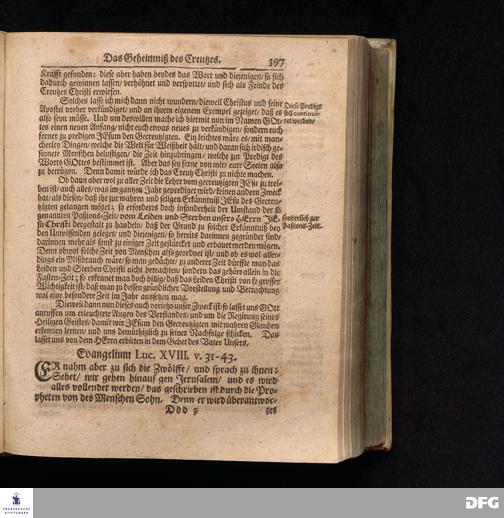 Das Geheimniß des Creutzes. 397
Krafft gefunden: diese aber haben beydes das Wort und diejenigen/ so sich
dadurch gewinnen lassen/ verhöhnet und verspottet/ und sich als Feinde des
Creutzes Christi erwiesen.
Solches lasse ich mich dann nicht wundern/ dieweil Christus und seine
Apostel vorher verkündiget/ und an ihrem eigenem Exempel gezeiget/ daß es
also seyn müsse. Und um deswillen mache ich hiermit nun im Namen GOt-
tes einen neuen Anfang/ nicht euch etwas neues zu verkündigen/ sondern euch
ferner zu predigen JEsum den Gecreutzigten. Ein leichtes wäre es/ mit man-
cherley Dingen/ welche die Welt für Weißheit hält/ und daran sich irdisch-ge-
sinnete Menschen belustigen/ die Zeit hinzubringen/ welche zur Predigt des
Worts GOttes bestimmet ist. Aber das sey ferne von mir/ eure Seelen also
zu betrügen. Denn damit würde ich das Creutz Christi zu nichte machen.
Diese Predigt
soll continui-
ret werden/
Ob dann aber wol zu aller Zeit die Lehre vom gecreutzigten JEsu zu trei-
ben ist/ auch alles/ was im gantzen Jahr geprediget wird/ keinen andern Zweck
hat/ als diesen/ daß ihr zur wahren und seligen Erkänntniß JEsu des Gecreu-
tzigten gelangen möget; so erfordert doch insonderheit der Umstand der so
genannten Paßions-Zeit/ vom Leiden und Sterben unsers HErrn JE-
su Christi dergestalt zu handeln/ daß der Grund zu solcher Erkänntniß bey
den Unwissenden geleget/ und diejenigen/ so bereits darinnen gegründet sind/
darinnen mehr als sonst zu einiger Zeit gestärcket und erbauet werden mögen.
sonderlich zur
Paßions-Zeit.
Denn obwol solche Zeit von Menschen also geordnet ist/ und ob es wol aller-
dings ein Mißbrauch wäre/ so man gedächte/ zu anderer Zeit dürffte man das
Leiden und Sterben Christi nicht betrachten/ sondern das gehöre allein in die
Fasten-Zeit; so erkennet man doch billig/ daß das Leiden Christi von so grosser
Wichtigkeit ist/ daß man zu dessen gründlicher Vorstellung und Betrachtung
wol eine besondere Zeit im Jahr aussetzen mag.
Dieweil dann nun dieses auch vorietzo unser Zweck ist/ so lasset uns GOtt
anruffen um erleuchtete Augen des Verstandes/ und um die Regirung seines
Heiligen Geistes/ damit wir JEsum den Gecreutzigten mit wahren Glauben
erkennen lernen/ und uns demüthiglich zu seiner Nachfolge schicken. Das
lasset uns von dem HErrn erbitten in dem Gebet des Vater Unsers.
Evangelium Luc. XVIII. v. 31-43.
ER nahm aber zu sich die Zwölffe/ und sprach zu ihnen:
Sehet/ wir gehen hinauf gen Jerusalem/ und es wird
alles vollendet werden/ das geschrieben ist durch die Pro-
pheten von des Menschen Sohn. Denn er wird überantwor-
Ddd 3 tet
FRANCKESCHE
STIFTUNGEN
DFG